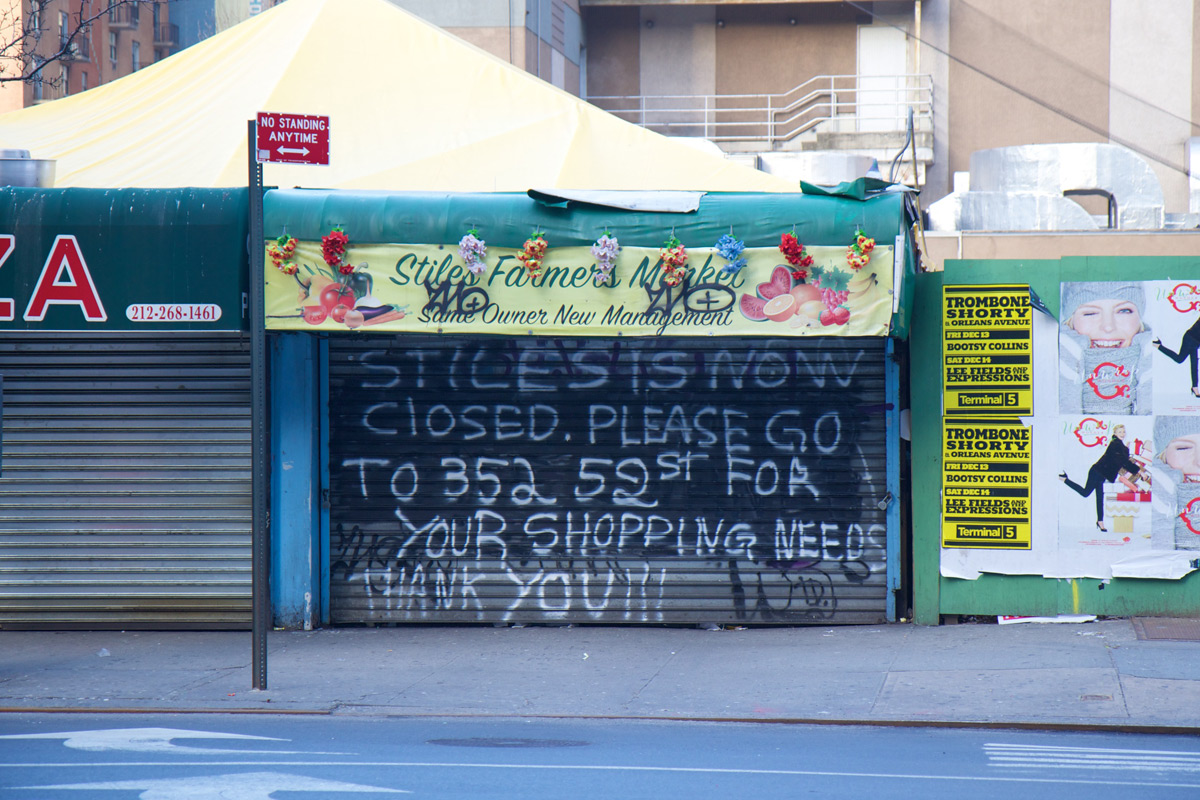 NO STANDING
ANYTIME
ZA
212-268-1461
Stiles Farmers Market
Same Owner New Management
STILES IS NOW
CLOSED. PLEASE GO
TO 352 52ST FOR
YOUR SHOPPING NEEDS
THANK YOU!!!
TROMBONE
SHORTY
& ORLEANS AVENUE
FRI DEC 13
BOOTSY COLLINS
SAT DEC 14
LEE FIELDS AND THE
EXPRESSIONS
Terminal 5
TROMBONE
SHORTY
& ORLEANS AVENUE
FRI DEC 13
BOOTSY COLLINS
SAT DEC 14
LEE FIELDS AND THE
EXPRESSIONS
Terminal 5